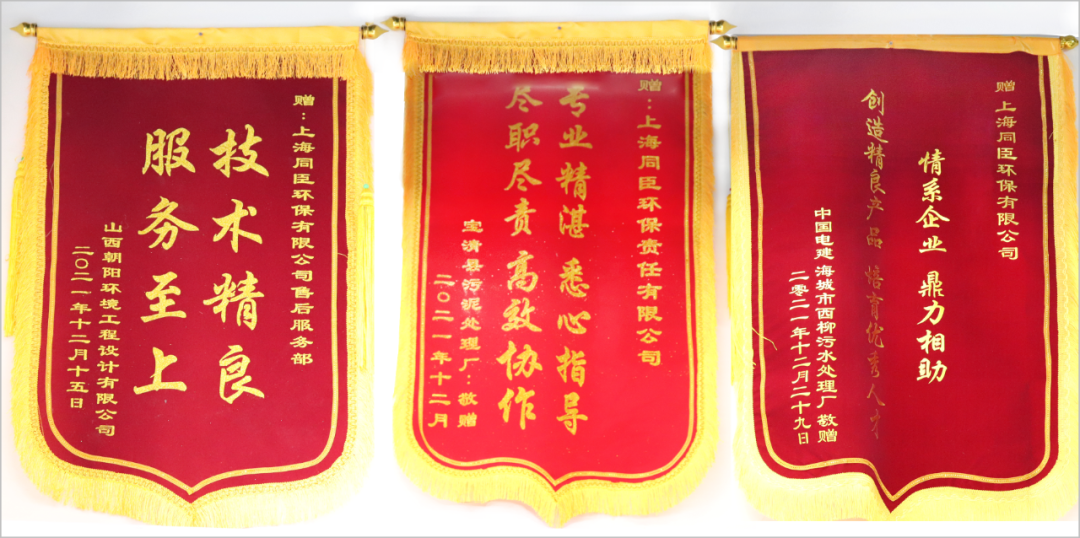 赠：上海同臣环保有限公司售后服务部
技术精良
服务至上
山西朝阳环境工程设计有限公司
二〇二一年十二月十五日
赠：上海同臣环保责任有限公司
专业精湛 悉心指导
尽职尽责 高效协作
宝清县污泥处理厂：敬赠
二〇二一年十二月
赠 上海同臣环保有限公司
情系企业 鼎力相助
创造精良产品 培育优秀人才
中国电建 海城市西柳污水处理厂 敬赠
二零二一年十二月二十九日